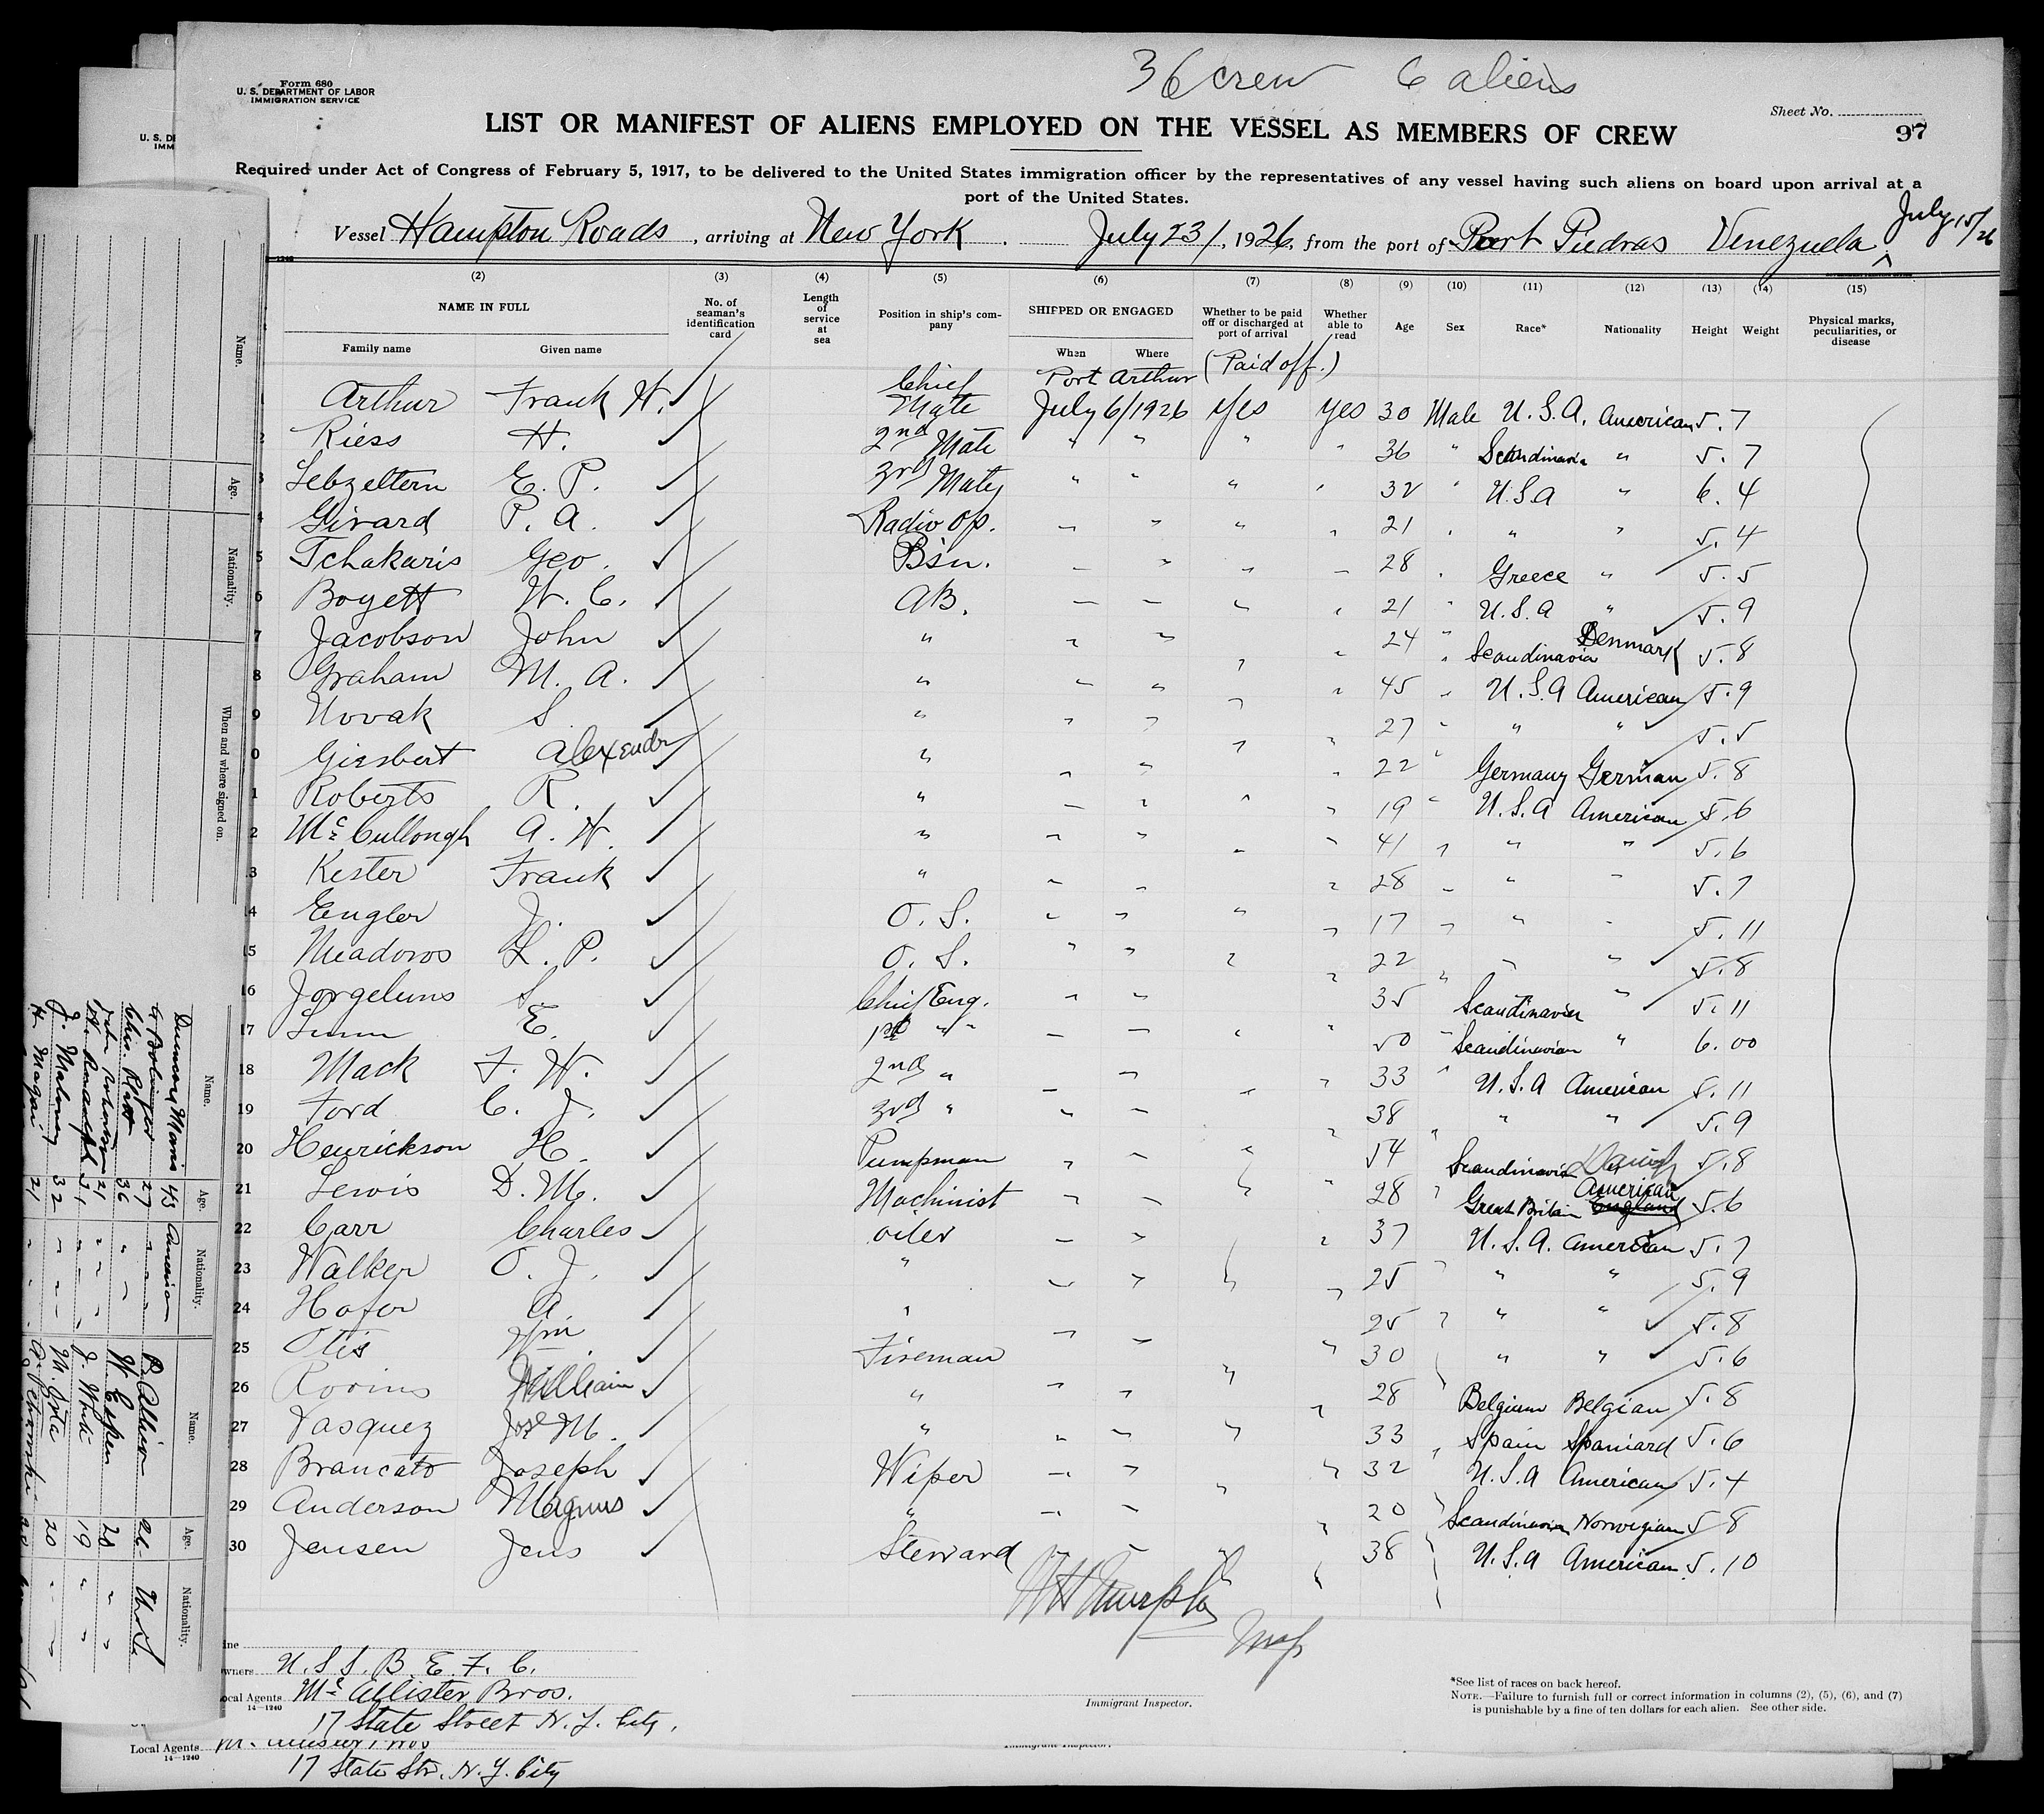 36 crew 6 aliens
Form 680
U. S. DEPARTMENT OF LABOR
IMMIGRATION SERVICE
Sheet No.
97
LIST OR MANIFEST OF ALIENS EMPLOYED ON THE VESSEL AS MEMBERS OF CREW
Required under Act of Congress of February 5, 1917, to be delivered to the United States immigration officer by the representatives of any vessel having such aliens on board upon arrival at a
port of the United States.
Vessel Hampton Roads, arriving at New York. July 23/, 1926, from the port of Port Piedras Venezuela July 15/26
(2) (3) (4) (5) (6) (7) (8) (9) (10) (11) (12) (13) (14) (15)
NAME IN FULL No. of seaman's identification card Length of service at sea Position in ship's company SHIPPED OR ENGAGED Whether to be paid off or discharged at port of arrival Whether able to read Age Sex Race* Nationality Height Weight Physical marks, peculiarities, or disease
Family name Given name When Where
Port Arthur (Paid off.)
Arthur Frank H. Chief Mate July 6/1926 Yes Yes 30 Male U.S.A. American 5.7
2 Riess H. 2nd Mate " " " " 36 " Scandinavia " 5.7
3 Lebzeltern E. P. 3rd Mate " " " " 32 " U.S.A " 6.4
4 Girard P. A. Radio Op. " " " " 21 " " " 5.4
5 Tchakaris Geo. Bsn. " " " " 28 " Greece " 5.5
6 Boyett W. C. AB. " " " " 21 " U.S.A " 5.9
7 Jacobson John " " " " 24 " Scandinavia Denmark 5.8
8 Graham M. A. " " " " " 45 " U.S.A American 5.9
9 Novak S. " " " " " 27 " " " 5.5
0 Giesbert Alexender " " " " " 22 " Germany German 5.8
1 Roberts R. " " " " " 19 " U.S.A American 5.6
2 McCullough A. H. " " " " " 41 " " " 5.6
3 Kester Frank " " " " 28 " " " 5.7
14 Engler J. O. S. " " " " 17 " " " 5.11
15 Meadows L. P. O. S. " " " " 22 " " " 5.8
16 S. Chief Eng. " " 35 Scandinavian " 5.11
17 E. 1st " " " " " " 50 " Scandinavian " 6.00
18 Mack F. W. 2nd " " " " " 33 " U.S.A American 5.11
19 Ford C. J. 3rd " " " " 38 " " " 5.9
20 Henrickson H. Pumpman " " " 54 Scandinavia Danish 5.8
21 Lewis D. M. Machinist " " " " 28 " Great Britain England American 5.6
22 Carr Charles oiler " " " 37 U.S.A. American 5.7
23 Walker O. J. " " " " " 25 " " " 5.9
24 Hofer A. " " " 25 " " " 5.8
25 Otis Wm. Fireman " " 30 " " 5.6
26 William " " " " " 28 Belgium Belgian 5.8
27 Vasquez Jose M. " " " " 33 " Spain Spaniard 5.6
28 Brancato Joseph Wiper " " " " 32 U.S.A American 5.4
29 Anderson Magnus " " " " 20 Scandinavian Norwegian 5.8
30 Jensen Jens Steward " " " 38 U.S.A American 5.10
W H Murphy
Owners U.S.S.B.E.F.C.
Local Agents McAllister Bros.
14—1240
17 State Street N.Y. City.
Immigrant Inspector.
*See list of races on back hereof.
NOTE.—Failure to furnish full or correct information in columns (2), (5), (6), and (7)
is punishable by a fine of ten dollars for each alien. See other side.
Local Agents
14—1240
17 State Str. N.Y. City
Immigrant Inspector.
Name. Age. Nationality. When and where signed on.
Name. Age. Nationality. Name. Age. Nationality.
Duncan Morris 43 American
27 " W. Esper
36 "
J. Maloney 32 "
H. Magai 21 "